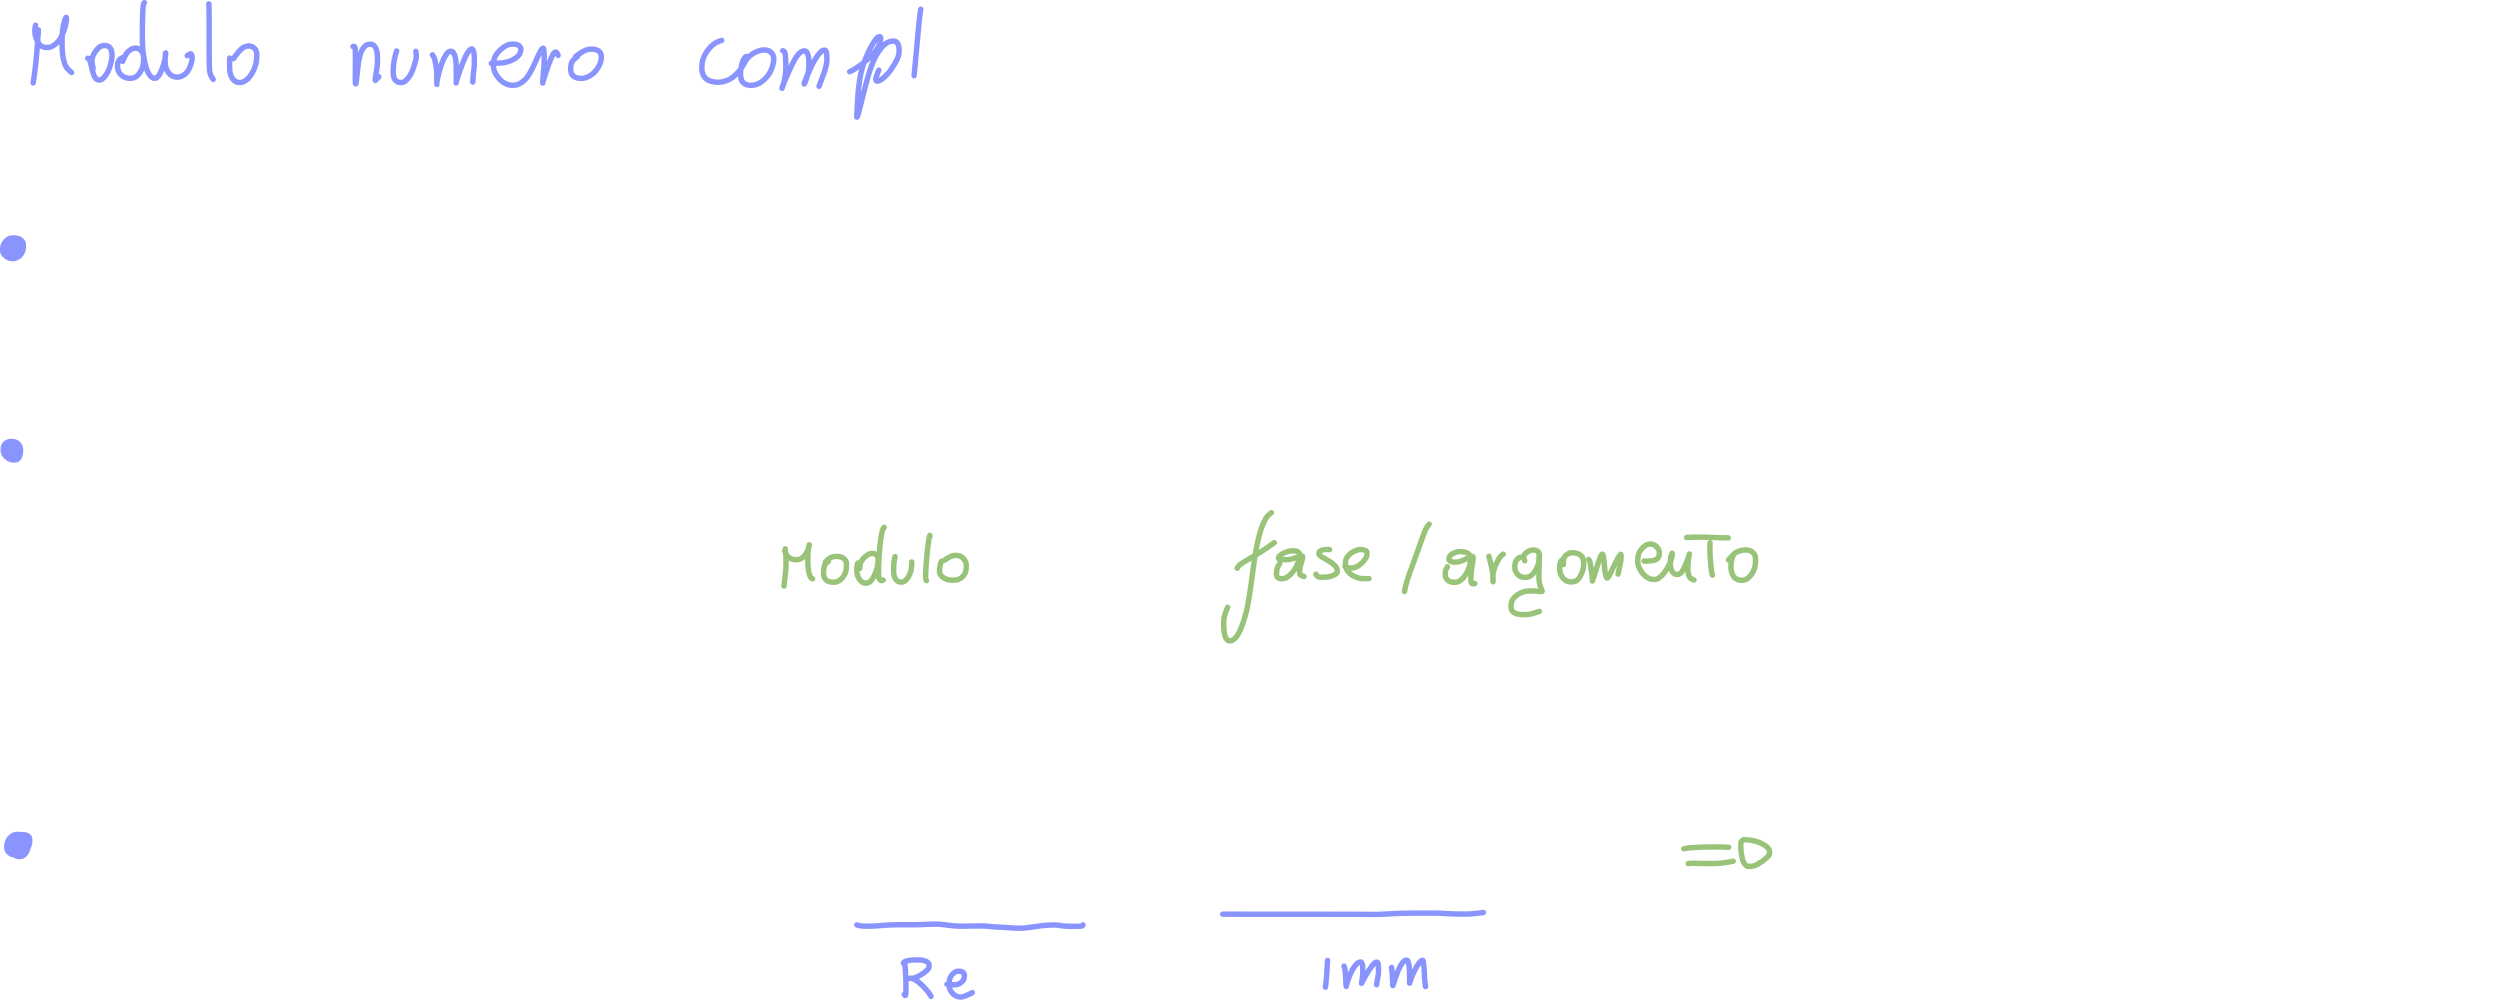 Modulo numero compl
modulo fase/argomento
Re Imm